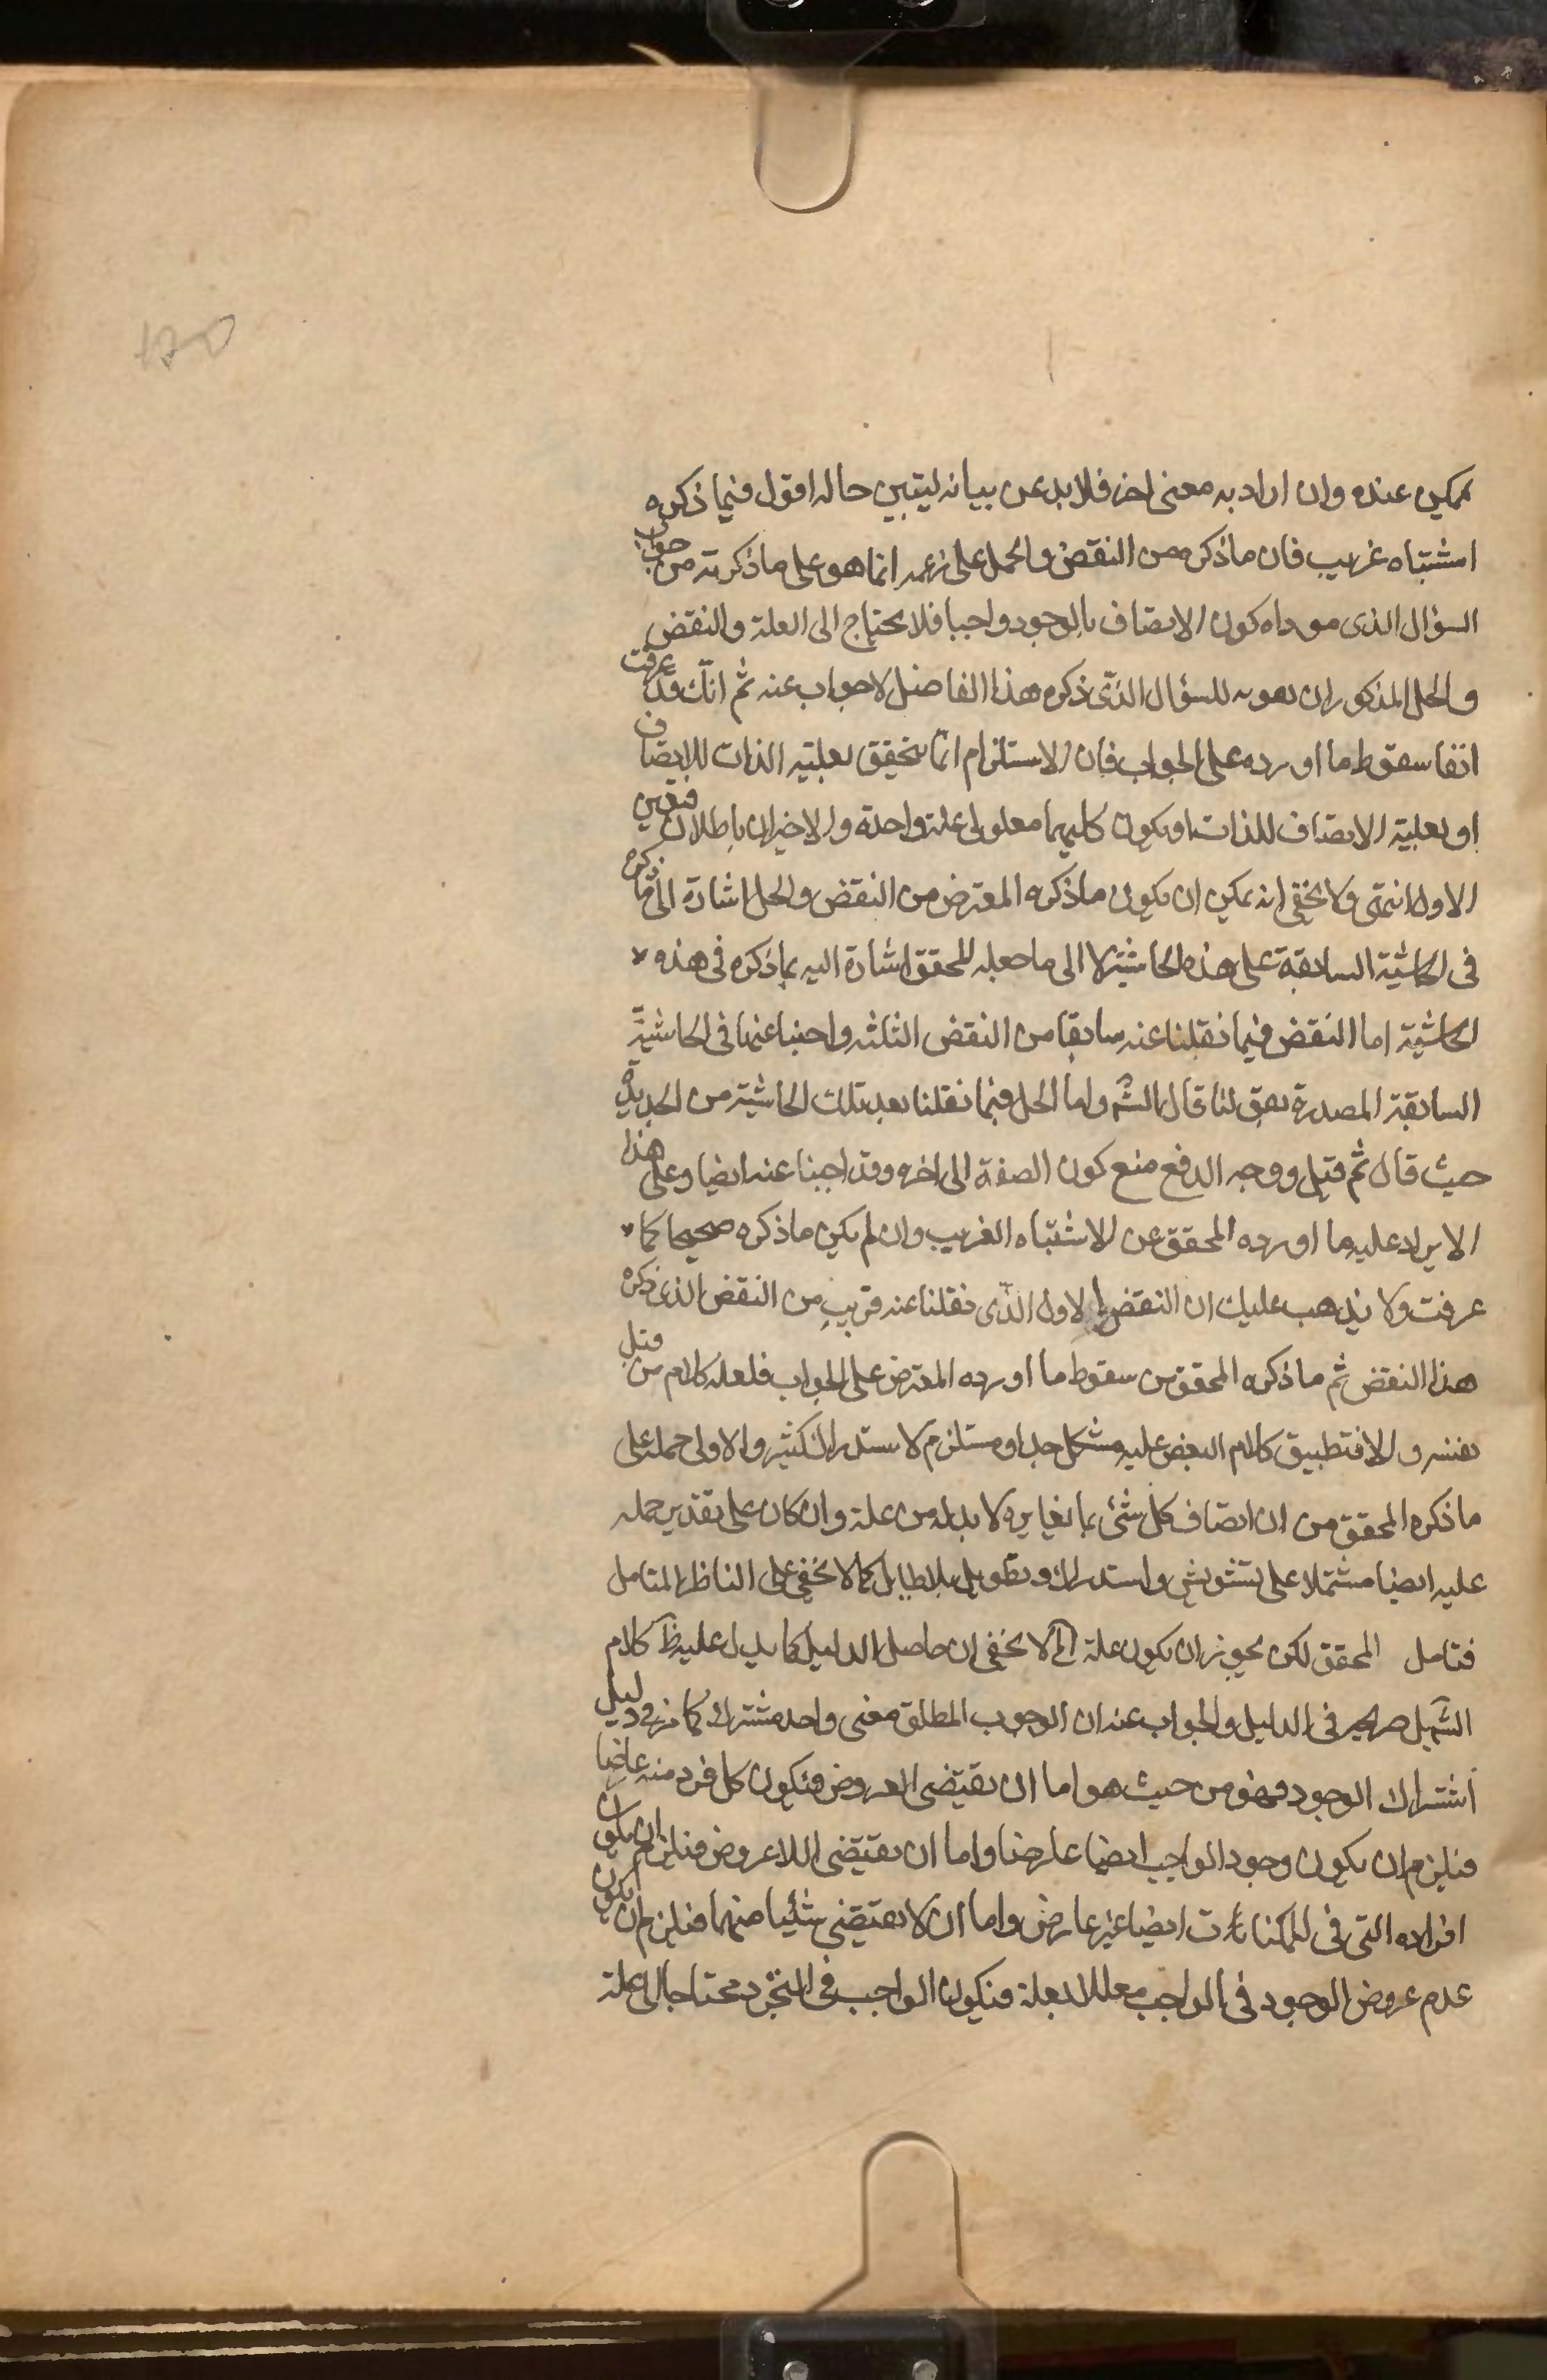 ممكن عنده وان اراد به معنى اخر فلا بد عن بيانه ليتبين حاله اقول فيما ذكره
اشتباه غريب فان ما ذكره من النقض والحمل على زعمه انما هو على ما ذكرته من جواب
السؤال الذى موداه كون الاتصاف بالوجود واجبا فلا يحتاج الى العلة والنقض
والحل المذكوران للسؤال الذى ذكره هذا الفاضل لا جواب عنه ثم انك قد عرفت
انفا سقوط ما اورده على الجواب فان الاستلزام انما يتحقق بعلية الذات للاتصاف
او بعلية الاتصاف للذات او بكون كليهما معلولى علة واحدة والاخيران باطلان فتعين
الاول انتهى ولا يخفى انه يمكن ان يكون ما ذكره المعترض من النقض والحل اشارة الى ما ذكره
فى الحاشية السابقة على هذه الحاشية لا الى ما جعله المحقق اشارة اليه بما ذكره فى هذه
الحاشية اما النقض فيما نقلنا عنه سابقا من النقض الثلثه واجبنا عنها فى الحاشية
السابقة المصدرة بقولنا قال الشه واما الحل فيما نقلنا بعد تلك الحاشية من الجديدة
حيث قال ثم قيل ووجه الدفع منع كون الصفة الى اخره وقد اجبنا عنه ايضا وعلى هذا
الايراد عليه ما اورده المحقق عن الاشتباه الغريب وان لم يكن ما ذكره صحيحا كما
عرفت ولا يذهب عليك ان النقض الاول الذى نقلنا عنه قريب من النقض الذى ذكره
هذا النقض ثم ما ذكره المحقق من سقوط ما اورده المعترض على الجواب فلعله كلام من قبل
نفسه والا فتطبيق كلام البعض عليه مشكل جدا ومستلزم لاستدراك كثير والاولى حمله على
ما ذكره المحقق من ان اتصاف كل شئ بما يغايره لا بد له من علة وان كان على تقدير حمله
عليه ايضا مشتملا على تشويش واستدراك وتطويل بلا طايل كما لا يخفى على الناظر المتامل
فتامل المحقق لكن يجوز ان يكون علة الخ لا يخفى ان حاصل الدليل كما يدل عليه ظ كلام
الشه بل صريحه فى الدليل والجواب عنه ان الوجوب المطلق معنى واحد مشترك كما مر فى دليل
اشتراك الوجود فهو من حيث هو اما ان يقتضى العروض فيكون كل فرد منه عارضا
فيلزم ان يكون وجود الواجب ايضا عارضا واما ان يقتضى اللاعروض فيلزم ان يكون
افراده التى فى الممكنات ايضا غير عارض واما ان لا يقتضى شيئا منهما فيلزم ان يكون
عدم عروض الوجود فى الواجب معللا بعلة فيكون الواجب فى التجرد محتاجا الى علة